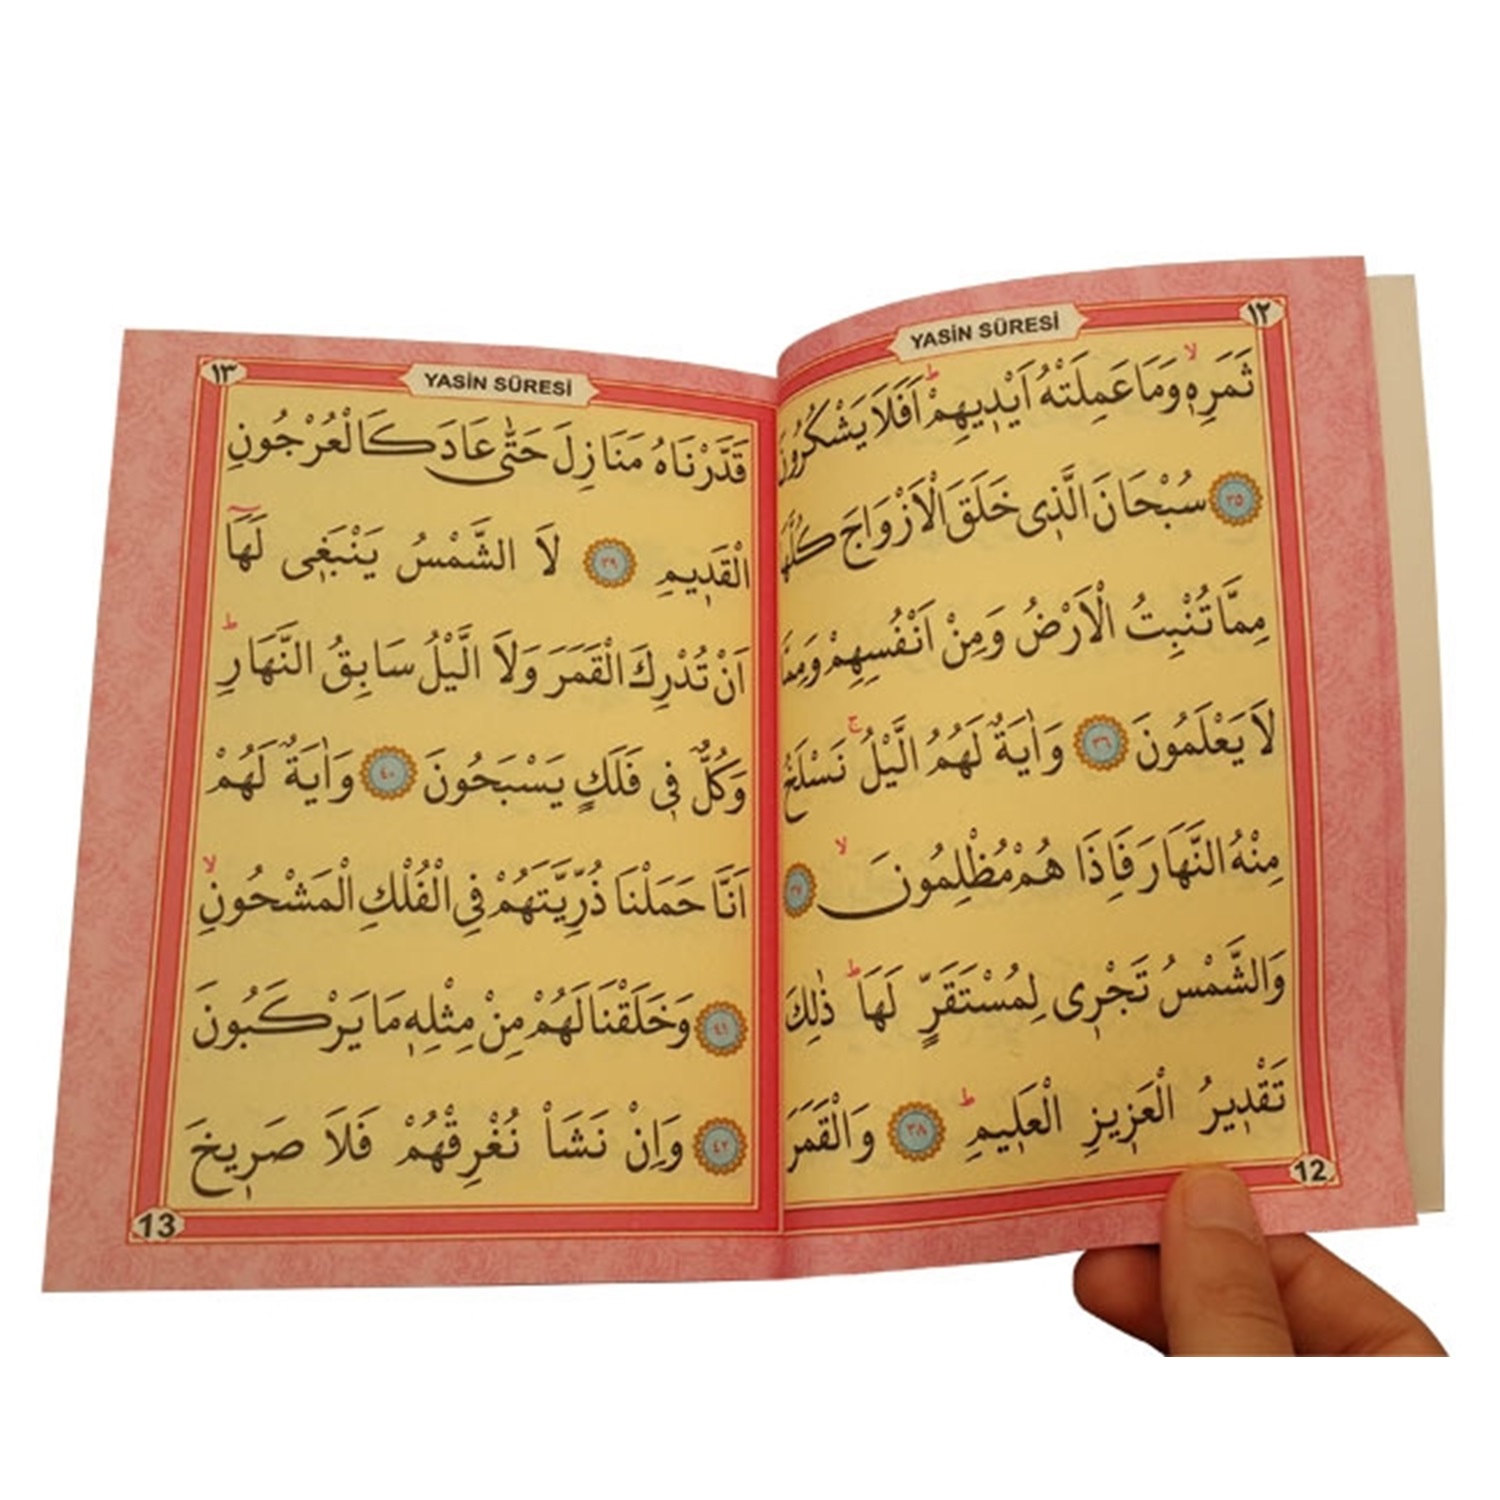 ١٢
YASİN SÛRESİ
ثَمَرِه۪ وَمَا عَمِلَتْهُ اَيْد۪يهِمْۜ اَفَلَا يَشْكُرُونَ
٣٥ سُبْحَانَ الَّذ۪ى خَلَقَ الْاَزْوَاجَ كُلَّهَا
مِمَّا تُنْبِتُ الْاَرْضُ وَمِنْ اَنْفُسِهِمْ وَمِمَّا
لَا يَعْلَمُونَ ٣٦ وَاٰيَةٌ لَهُمُ الَّيْلُۚ نَسْلَخُ
مِنْهُ النَّهَارَ فَاِذَا هُمْ مُظْلِمُونَۙ ٣٧
وَالشَّمْسُ تَجْر۪ى لِمُسْتَقَرٍّ لَهَاۜ ذٰلِكَ
تَقْد۪يرُ الْعَز۪يزِ الْعَل۪يمِۜ ٣٨ وَالْقَمَرَ
12
١٣
YASİN SÛRESİ
قَدَّرْنَاهُ مَنَازِلَ حَتّٰى عَادَ كَالْعُرْجُونِ
الْقَد۪يمِ ٣٩ لَا الشَّمْسُ يَنْبَغ۪ى لَهَٓا
اَنْ تُدْرِكَ الْقَمَرَ وَلَا الَّيْلُ سَابِقُ النَّهَارِۜ
وَكُلٌّ ف۪ى فَلَكٍ يَسْبَحُونَ ٤٠ وَاٰيَةٌ لَهُمْ
اَنَّا حَمَلْنَا ذُرِّيَّتَهُمْ فِى الْفُلْكِ الْمَشْحُونِۙ
٤١ وَخَلَقْنَا لَهُمْ مِنْ مِثْلِه۪ مَا يَرْكَبُونَ
٤٢ وَاِنْ نَشَأْ نُغْرِقْهُمْ فَلَا صَر۪يخَ
13